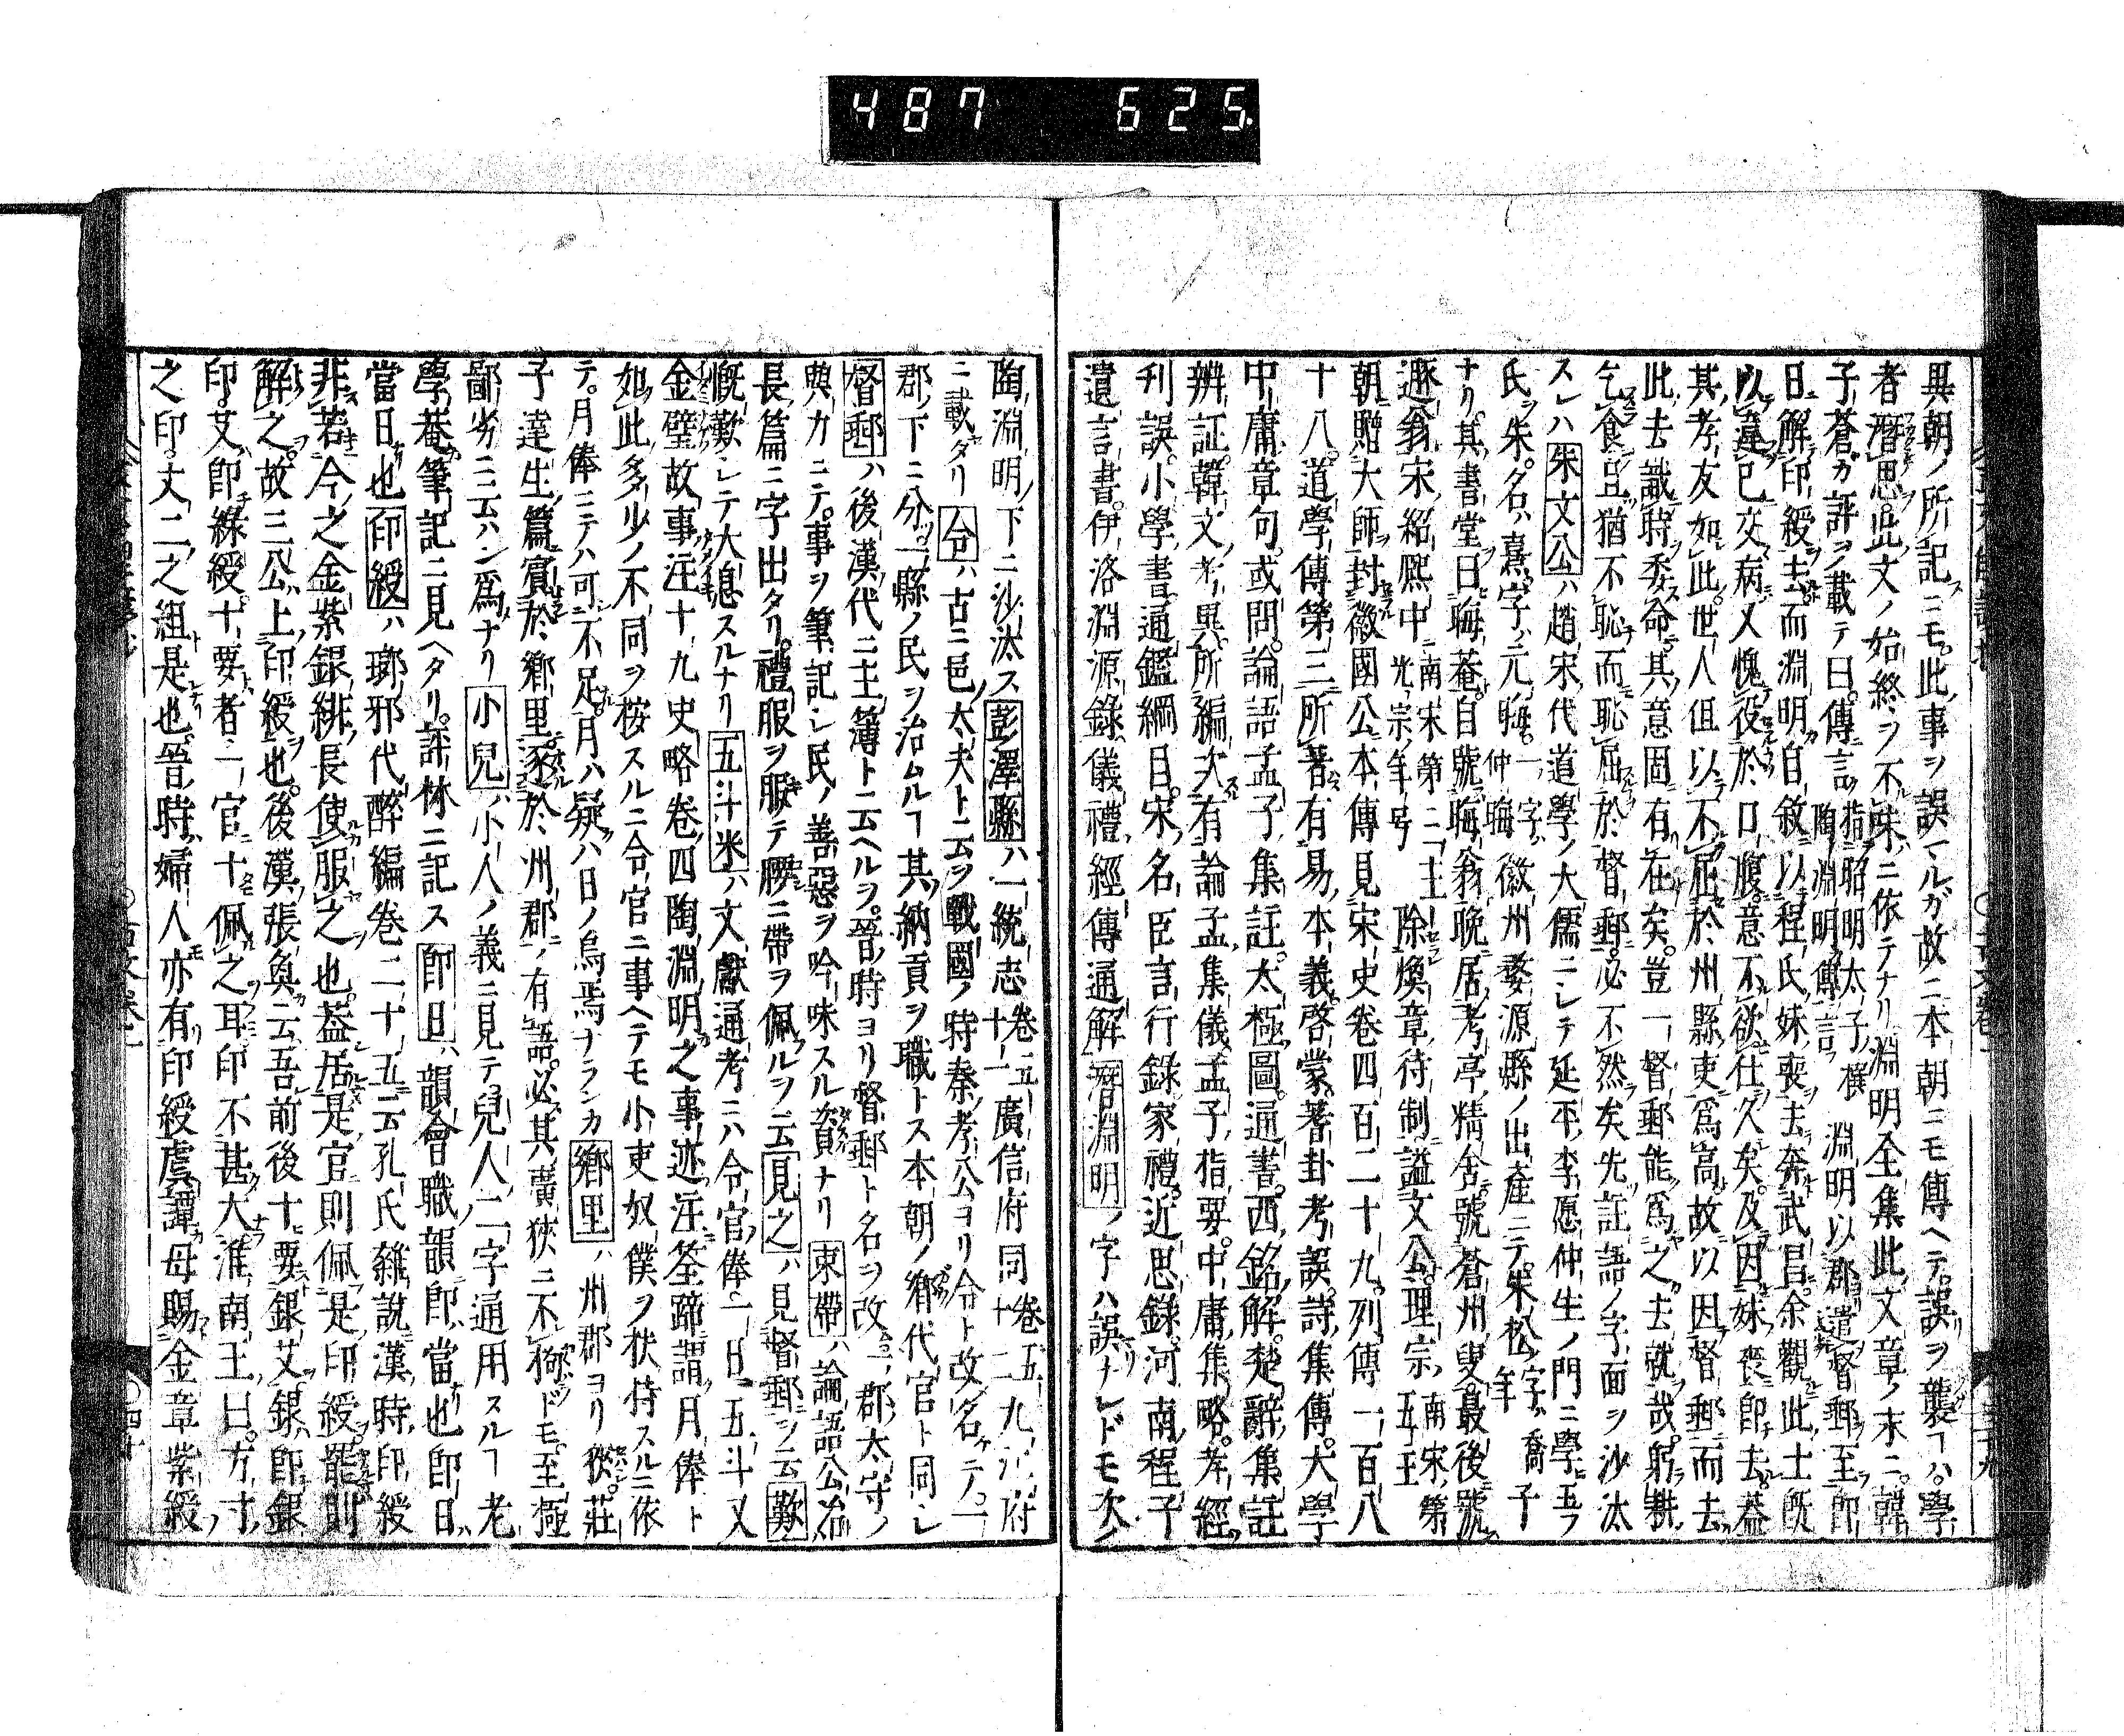 487 625.
異朝ノ所記ニモ此事ヲ誤マルガ故ニ本朝ニモ傳ヘテ誤リヲ襲フハ學
者潛思此文ノ始終ヲ不味ニ依テナリ淵明全集此文章ノ末ニ韓
子蒼カ評ヲ載テ曰傳言指昭明太子撰陶淵明傳言淵明以郡遣督郵至即
日解印綬去而淵明自敘以程氏妹喪去奔武昌余觀此士既
以違己交病又愧役於口腹意不欲仕久矣及因妹喪即去蓋
其孝友如此世人但以不屈於州縣吏爲高故以因督郵而去
此去識時委命其意固有在矣豈一督郵能爲之去就哉躬耕
乞食且猶不恥而恥屈於督郵必不然矣先註語ノ字面ヲ沙汰
スレハ朱文公ハ趙宋代道學ノ大儒ニシテ延平李愿仲生ノ門ニ學五フ
氏ヲ朱名ハ熹字ハ元晦一字仲晦徽州婺源縣ノ出產ニテ朱松字喬年ノ子
ナリ其書堂ヲ曰晦菴自號晦翁晚居考亭精舍號蒼州叟最後號
遯翁宋紹熙中南宋第二主光宗年号除煥章待制謚文公理宗南宋第五主
朝贈大師封徽國公本傳見宋史卷四百二十九列傳一百八
十八道學傳第三所著有易本義啓蒙著卦考誤詩集傳大學
中庸章句或問論語孟子集註太極圖通書西銘解楚辭集註
辨証韓文考異所編次有論孟集儀孟子指要中庸集略孝經
刊誤小學書通鑑綱目宋名臣言行錄家禮近思錄河南程子
遺言書伊洛淵源錄儀禮經傳通解潛淵明ノ字ハ誤ナレドモ次ノ
陶淵明ノ下ニ沙汰ス彭澤縣ハ一統志卷五十一廣信府同卷五十二九江府
ニ載タリ令ハ古ニ邑大夫ト云ヲ戰國ノ時秦孝公ヨリ令ト改名ニテ一
郡ノ下ニ分ツ一縣ノ民ヲ治ムルヿ其納貢ヲ職トス本朝ノ鄉代官ト同シ
督郵ハ後漢代ニ主簿ト云ヘルヲ晉時ヨリ督郵ト名ヲ改ム一郡太守ノ
與力ニテ事ヲ筆記シ民ノ善惡ヲ吟味スル資ナリ束帶ハ論語公冶
長篇ニ字出タリ禮服ヲ服テ腰ニ帶ヲ佩ルヲ云見之ハ見督郵ヲ云歎
慨歎シテ大息スルナリ五斗米ハ文獻通考ニハ令官俸一日五斗又
金璧故事注十九史略卷四陶淵明之事迹注筌蹄謂月俸ト
如此多少ノ不同ヲ按スルニ令官ニ事ヘテモ小吏奴僕ヲ扶侍スルニ依
テ月俸ニテハ可不足月ハ疑ハ日ノ烏焉ナランカ鄉里ハ州郡ヨリ狹莊
子達生篇賓於鄉里逐於州郡ノ有語必其廣狹ニ不拘ドモ至極
鄙劣ニ云ハン爲ナリ小兒ハ小人ノ義ニ見テ兒人二字通用スルヿ老
學菴筆記ニ見ヘタリ評林ニ記ス即日ハ韻會職韻即當也即日ハ
當日也印綬ハ瑯邪代醉編卷二十五云孔氏雜說漢時印綬
非若今之金紫銀緋長使服之也蓋居是官則佩是印綬罷則
解之故三公上印綬也後漢張奐云吾前後十要銀艾銀即銀
印艾即綠綬十要者一官十佩之耳印不甚大淮南王曰方寸
之印丈二之組是也晉時婦人亦有印綬虞譚母賜金章紫綬